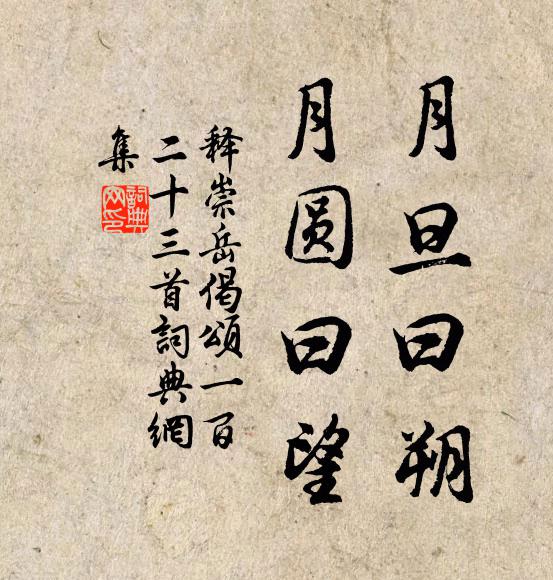 月旦曰朔
月圆曰望
释崇岳偈颂一百
二十三首詞典網
集
詞典網印